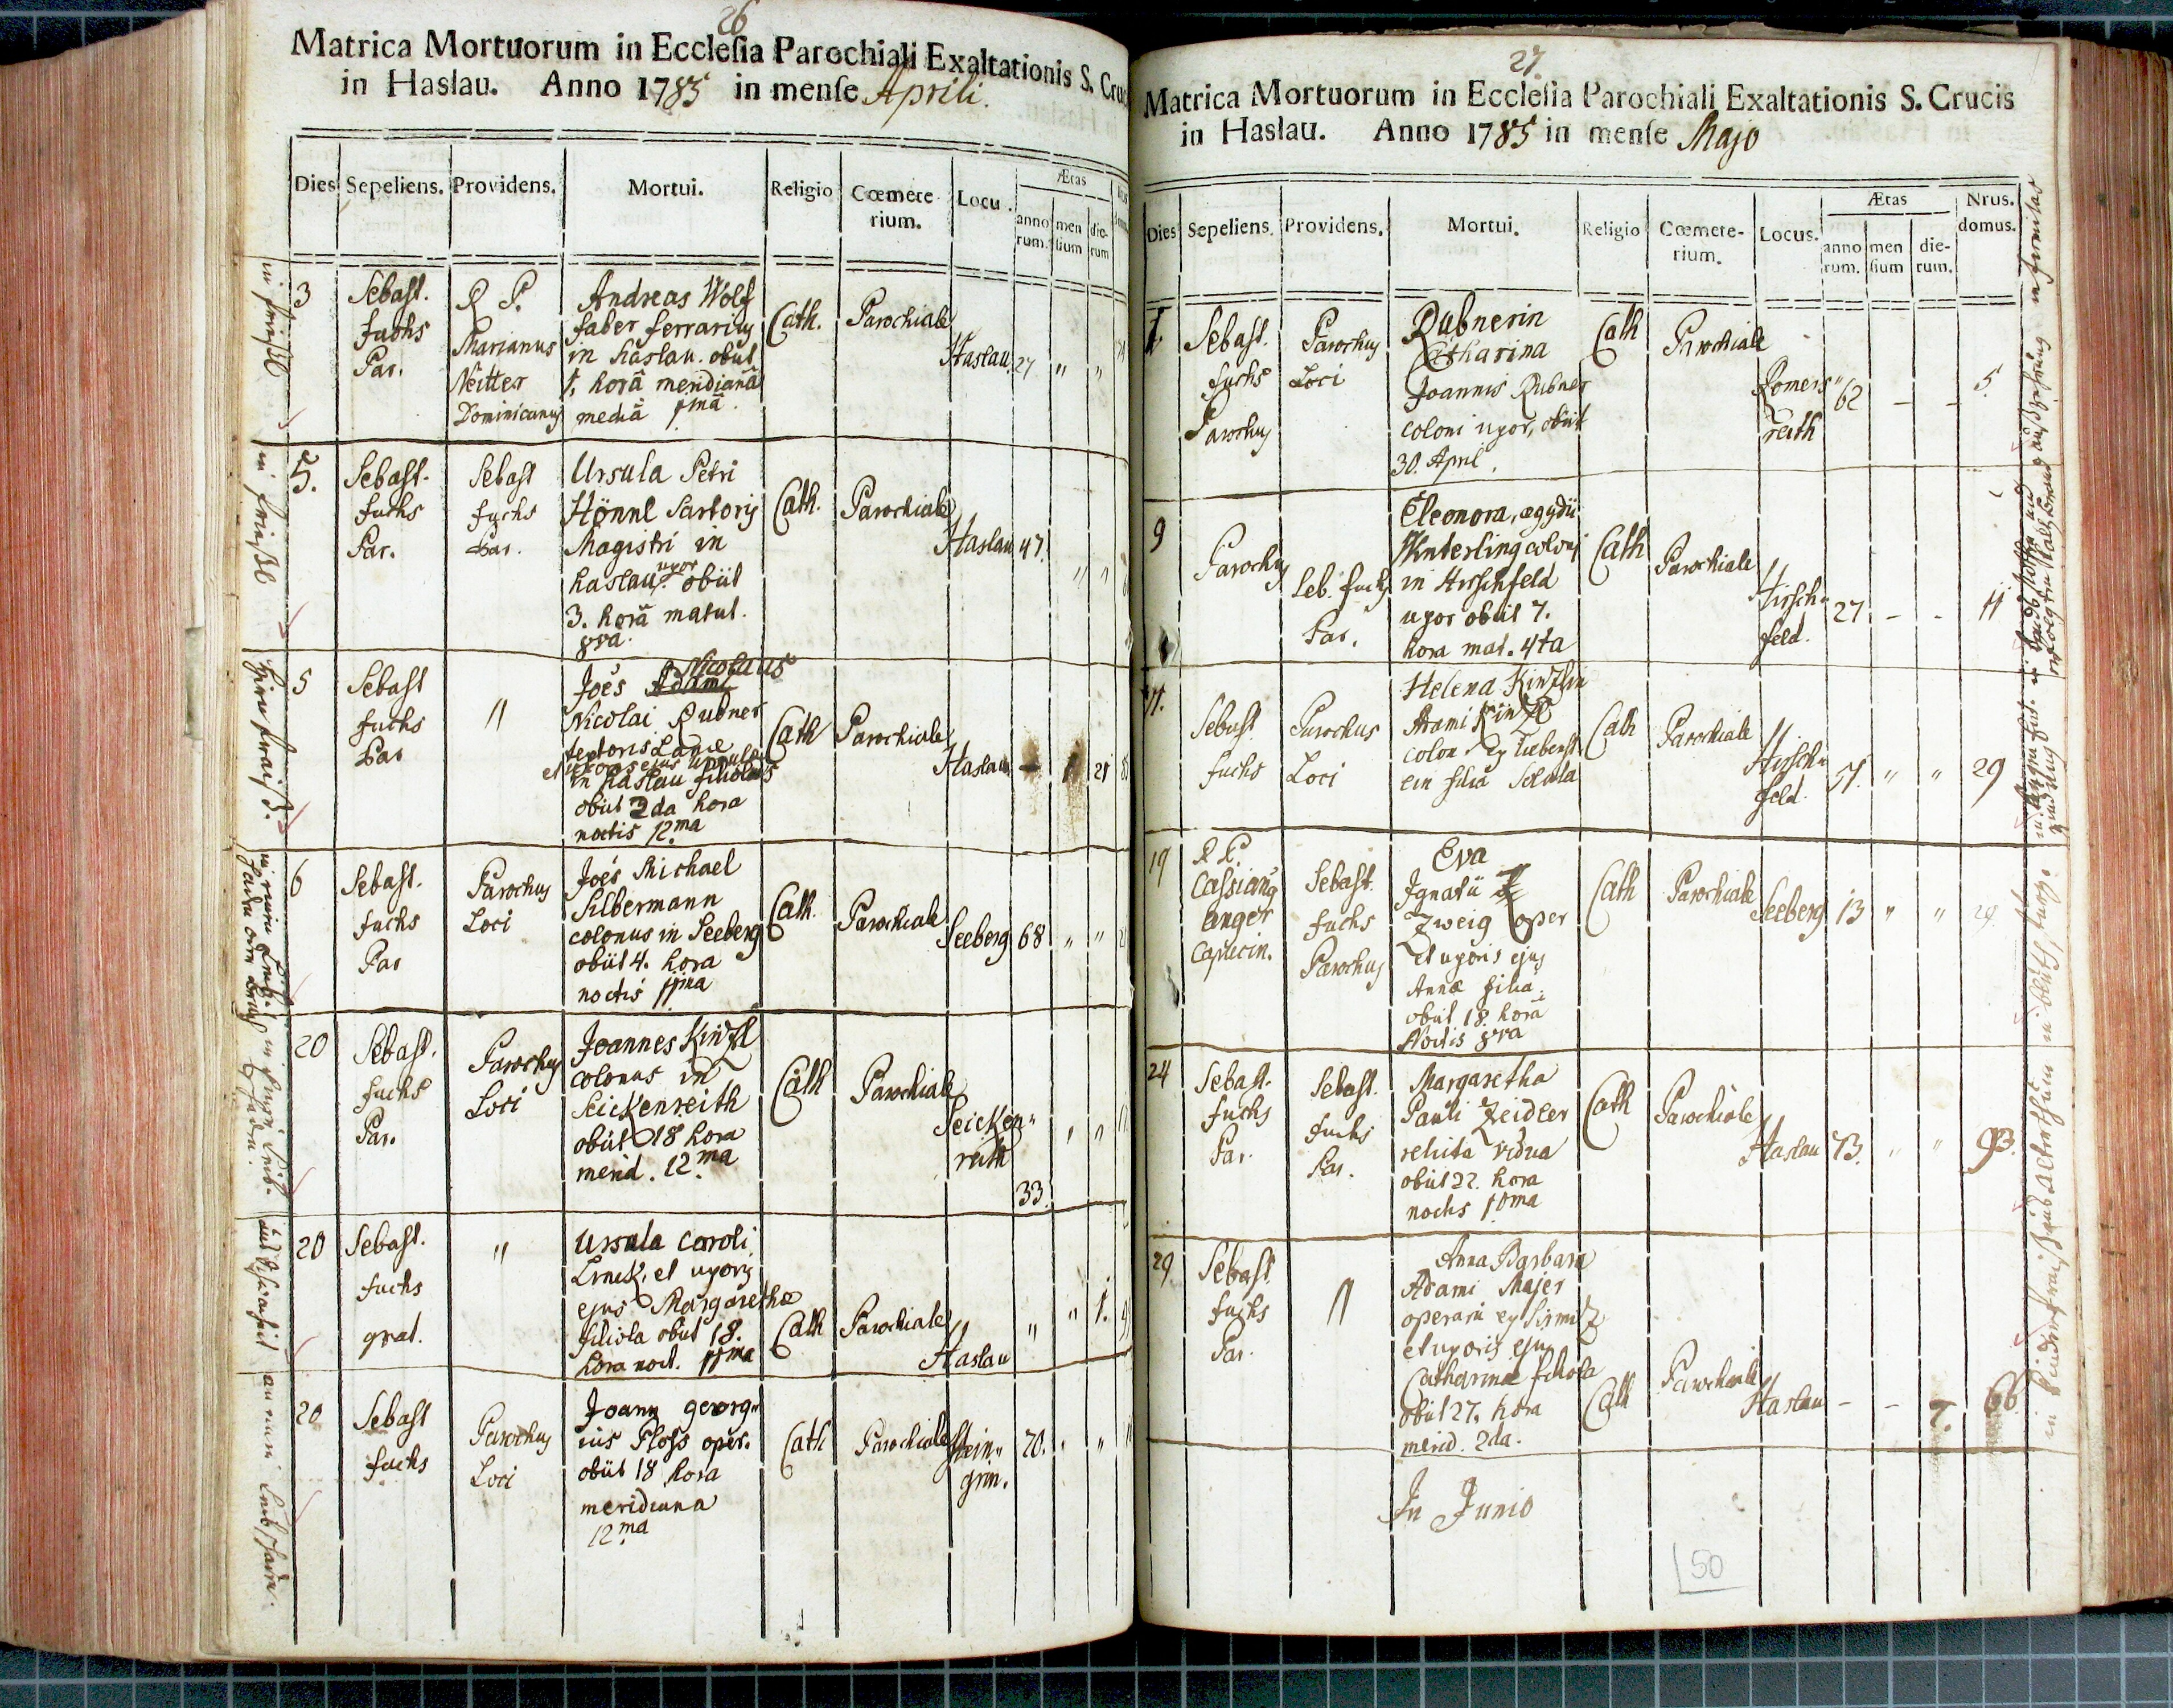 26
Matrica Mortuorum in Ecclesia Parochiali Exaltationis S. Cruc
in Haslau. Anno 1785 in mense Aprili.
Dies Sepeliens. Providens. Mortui. Religio Cœmete Locu Ætas
rium. anno men die-
rum. sium rum
3 Sebast. R. P. Andreas Wolf Cath. Parochiale Haslau 27 " "
fuchs Marianus faber ferrarius
Par. Neitter in Haslau. obiit
1, horâ meridianâ
Dominicanus mediâ 1mâ.
5. Sebast. Sebast Ursula Petri Cath. Parochiale Haslau 47. " "
fuchs fuchs Hönnl Sartoris
Par. Par. Magistri in
haslau uxor obiit
3. horâ matut.
8va.
5 Sebast " Joës Nicolaus Cath Parochiale Haslau 1 21
fuchs Nicolai Rubner
Par textoris Lanae
et uxoris ejus
in Haslau filiolus
obiit 2da hora
noctis 12.ma
6 Sebast. Parochus Joës Michael Cath. Parochiale Seeberg 68 " "
fuchs Loci Silbermann
Par colonus in Seeberg
obiit 4. hora
noctis 11ma
20 Sebast. Parochus Joannes Kinzl Cath Parochiale Seicken"
fuchs Loci colonus in reith
Par. Seickenreith 33. " "
obiit 18 hora
merid. 12.ma
20 Sebast. " Ursula Caroli Cath Parochiale Haslau " " 1.
fuchs et uxoris
grat. ejus Margarethae
filiola obiit 18.
hora noct. 11ma
20 Sebast Parochus Joann georg" Cath Parochiale Stein" 70. " "
fuchs Loci ius Ploss oper. grin.
obiit 18 hora
meridiana
12.ma
27.
Matrica Mortuorum in Ecclesia Parochiali Exaltationis S. Crucis
in Haslau. Anno 1785 in mense Majo
Dies Sepeliens. Providens. Mortui. Religio Cœmete- Locus. Ætas Nrus.
rium. anno men die- domus.
rum. sium rum.
1 Sebast. Parochus Rubnerin Cath Parochiale Romers" 62 - - 5
fuchs Loci Catharina reith
Parochus Joannis Rubner
coloni uxor, obiit
30. April.
9 Parochus Seb. fuchs Eleonora, ægydii Cath Parochiale Hirsch" 27 - - 11
Par. Künterling coloni feld.
in Hirschfeld
uxor obiit 7.
hora mat. 4ta
11. Sebast. Parochus Helena Kinzlin Cath Parochiale Hirsch" 51. " " 29
fuchs Loci Adami Kinzl feld.
colon ex Liebenst
ein filia Soluta
19 R. P. Sebast. Eva Cath Parochiale Seeberg 13 " " 29
Cassianus fuchs Ignatii
anger Parochus Zweig oper
Capucin. et uxoris ejus
Annæ filia.
obiit 18. horâ
Noctis 8va
24 Sebast. Sebast. Margaretha Cath Parochiale Haslau 73. " " 93.
fuchs fuchs Pauli Zeidler
Par. Par. relicta vidua
obiit 22. hora
noctis 10ma
29 Sebast. " Anna Barbara Cath Parochiale Haslau - - 7. 66
fuchs Adami Majer
Par. operarii ex Sirmitz
et uxoris ejus
Catharinæ filiola
obiit 27. hora
merid. 2da.
In Junio
50